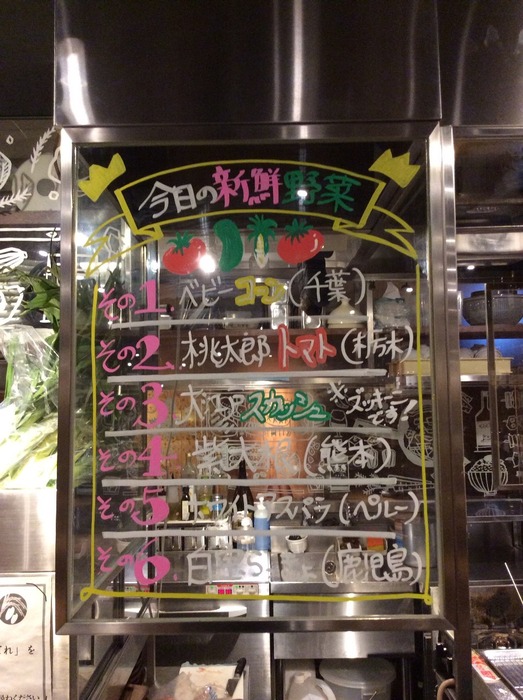 今日の新鮮野菜
その1 ベビーコーン(千葉)
その2 桃太郎トマト(栃木)
その3 スカッシュ ※ズッキーニです!
その4 紫大根(熊本)
その5 ホワイトアスパラ(ペルー)
その6 白 (鹿児島)